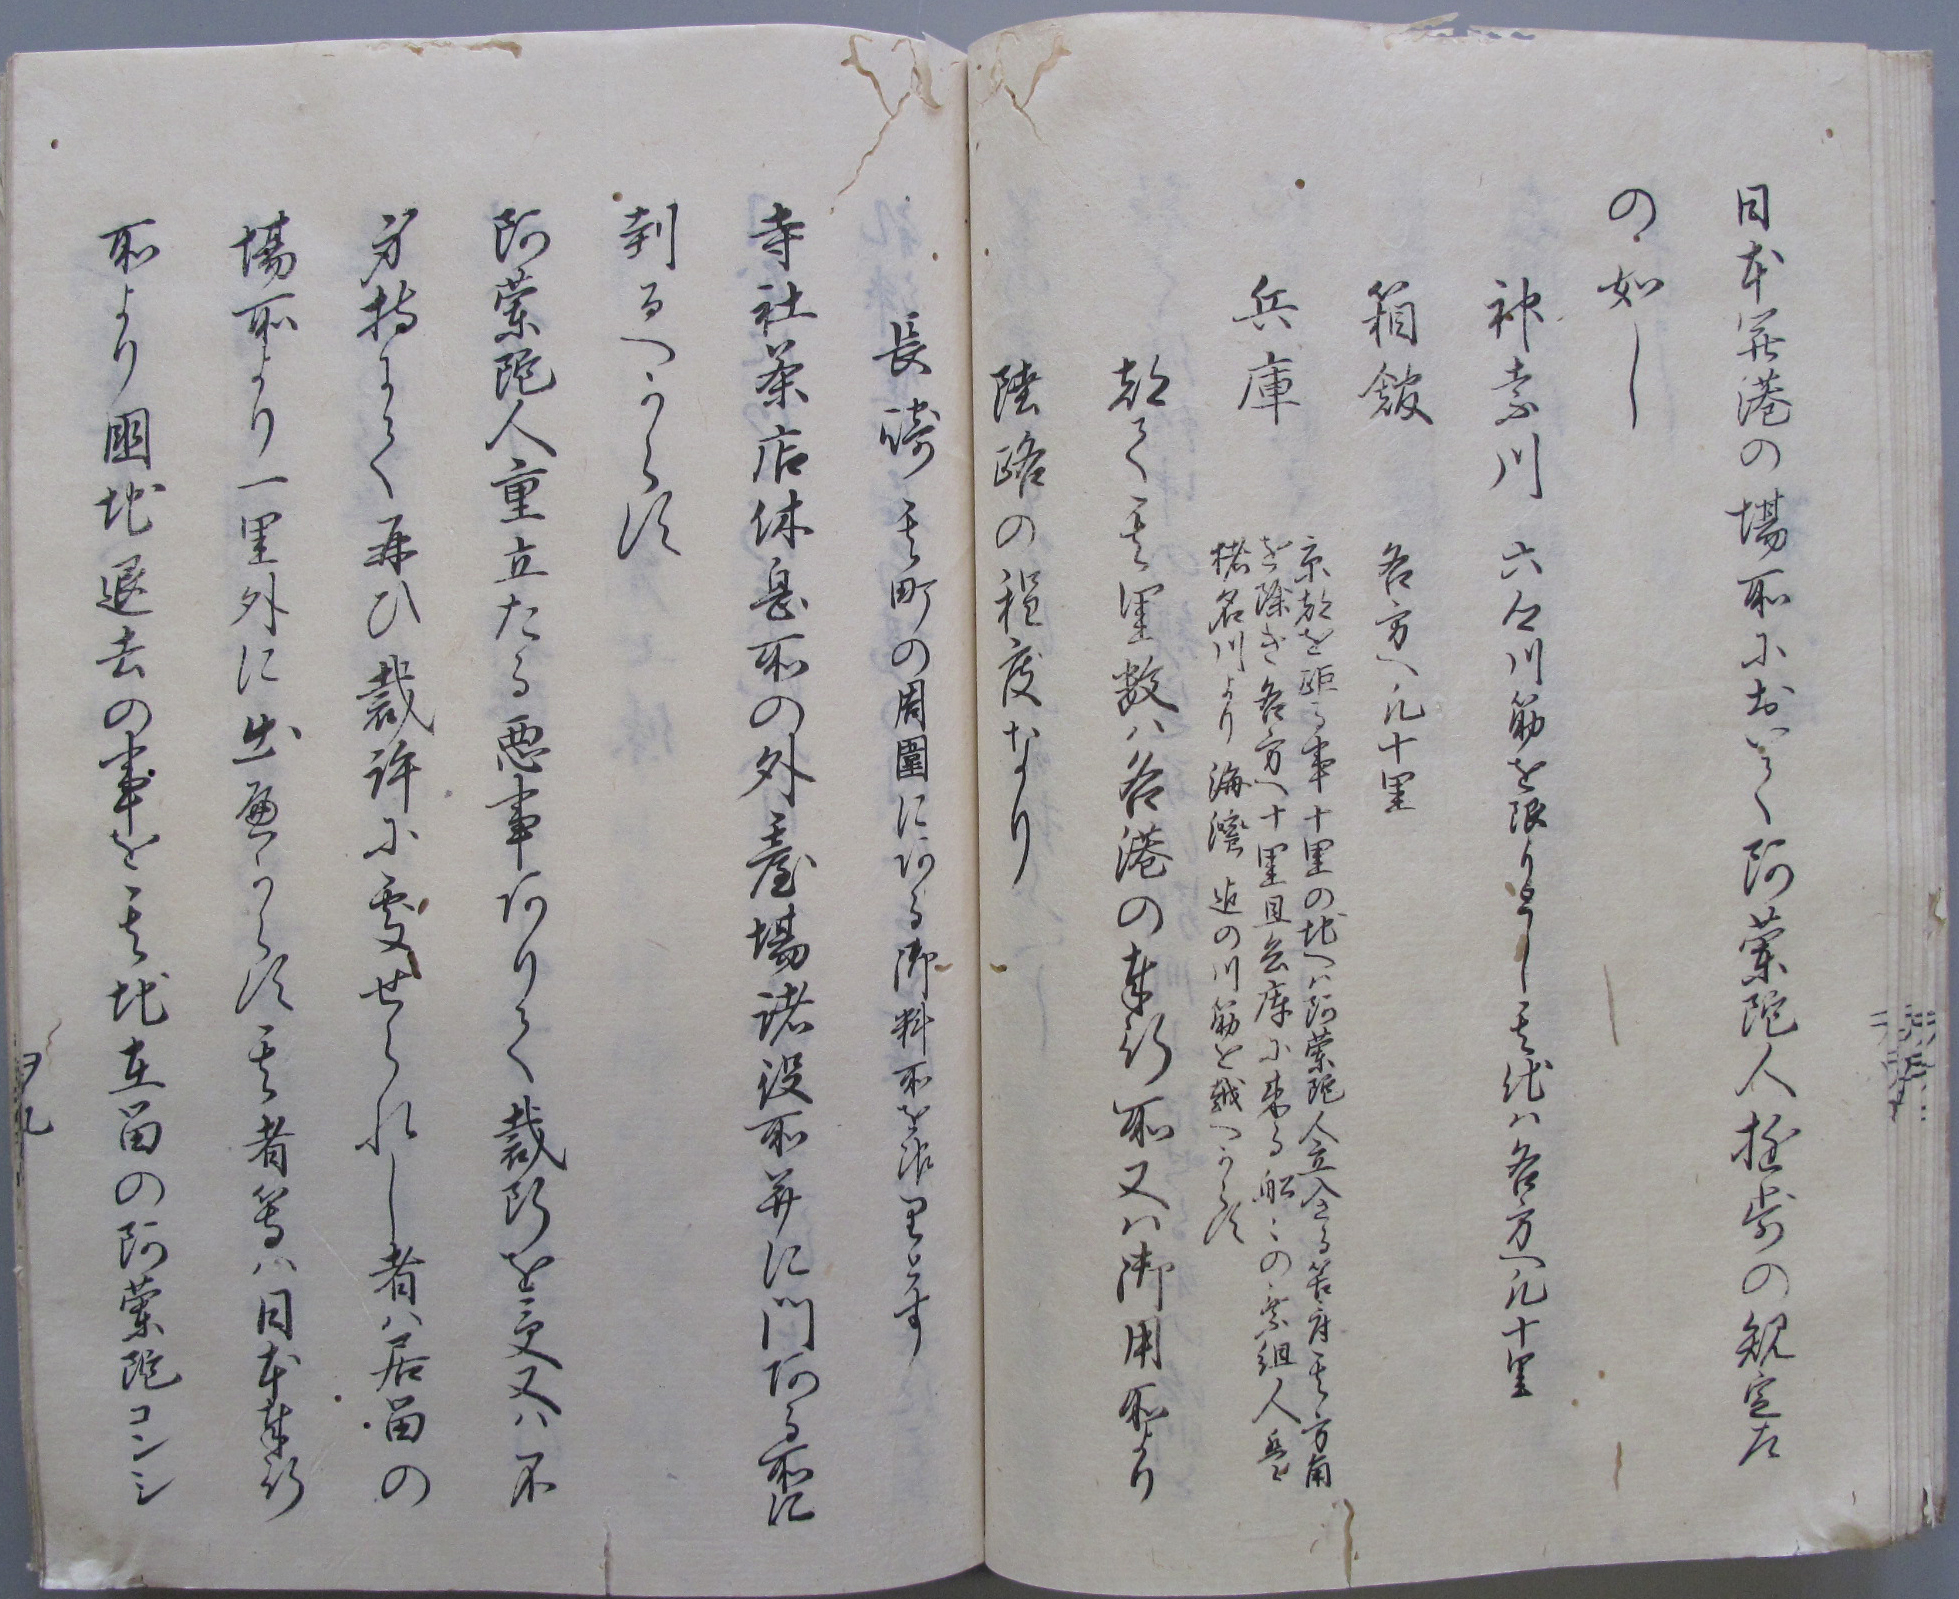 日本開港の場所において阿蘭陀人遊歩の規定左
の如し
神奈川 六合川筋を限りとし其他は各方へ凡十里
箱館 各方へ凡十里
兵庫 京都を距る事十里の地へは阿蘭陀人立入さる筈に付其方角
を除き各方へ十里且兵庫に来る船々の乗組人は
猪名川より海湾迄の川筋を越へからす
都て其里数は各港の奉行所又は御用所より
陸路の程度なり
長崎 其町の周囲にある御料所を限りとす
寺社茶店休息所の外臺場諸役所并に門ある所に
到るへからす
阿蘭陀人重立たる悪事ありて裁断を受又は不
身持にて再ひ裁許に處せられし者は居留の
場所より一里外に出へからす其者等は日本奉行
所より国地退去の事を其地在留の阿蘭陀コンシ